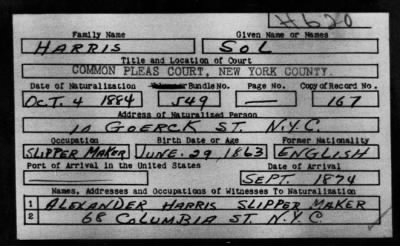 H620
Family Name Given Name or Names
HARRIS SOL
Title and Location of Court
COMMON PLEAS COURT, NEW YORK COUNTY.
Date of Naturalization Volume or Bundle No. Page No. Copy of Record No.
OCT. 4 1884 549 — 167
Address of Naturalized Person
10 GOERCK ST. N.Y.C.
Occupation Birth Date or Age Former Nationality
SLIPPER MAKER JUNE. 29, 1863 ENGLISH
Port of Arrival in the United States Date of Arrival
— SEPT. 1874
Names, Addresses and Occupations of Witnesses To Naturalization
1 ALEXANDER HARRIS SLIPPER MAKER
2 68 COLUMBIA ST. N.Y.C